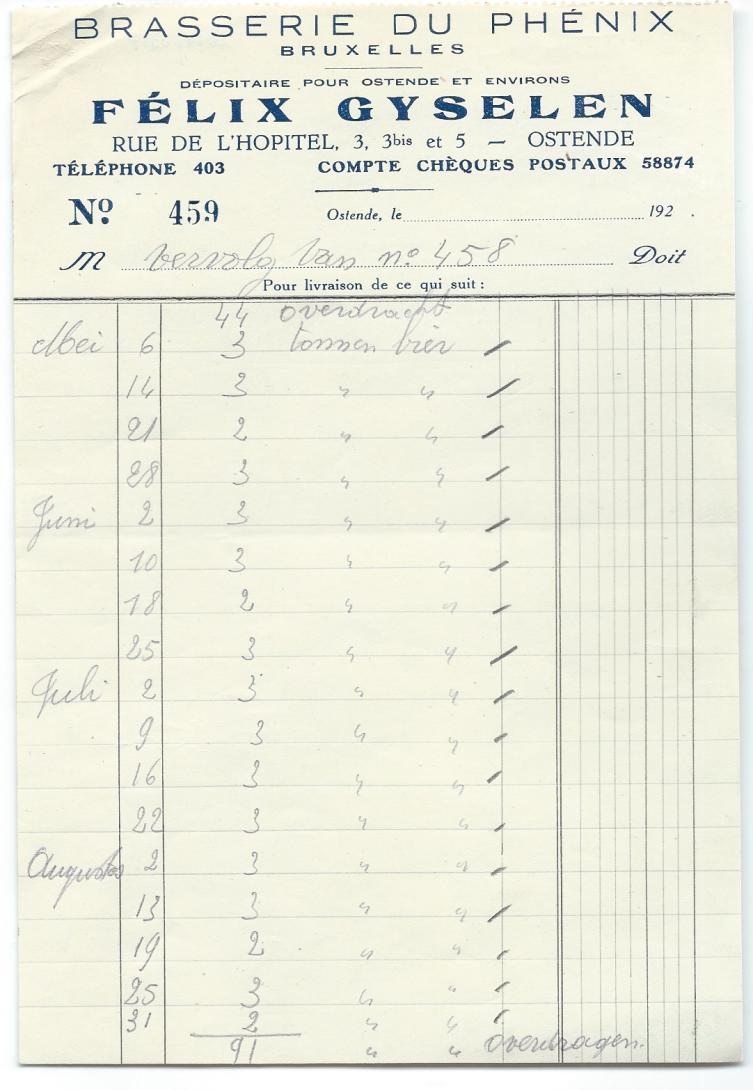 BRASSERIE DU PHÉNIX
BRUXELLES
DÉPOSITAIRE POUR OSTENDE ET ENVIRONS
FÉLIX GYSELEN
RUE DE L'HOPITEL, 3, 3bis et 5 — OSTENDE
TÉLÉPHONE 403 COMPTE CHÈQUES POSTAUX 58874
Nº 459 Ostende, le 192 .
M vervolg van nº 458 Doit
Pour livraison de ce qui suit :
44 overdracht
Mei 6 3 tonnen bier
14 3 " "
21 2 " "
28 3 " "
Juni 2 3 " "
10 3 " "
18 2 " "
25 3 " "
Juli 2 3 " "
9 3 " "
16 3 " "
22 3 " "
Augustus 2 3 " "
13 3 " "
19 2 " "
25 3 " "
31 2 " "
91 " " overdragen.